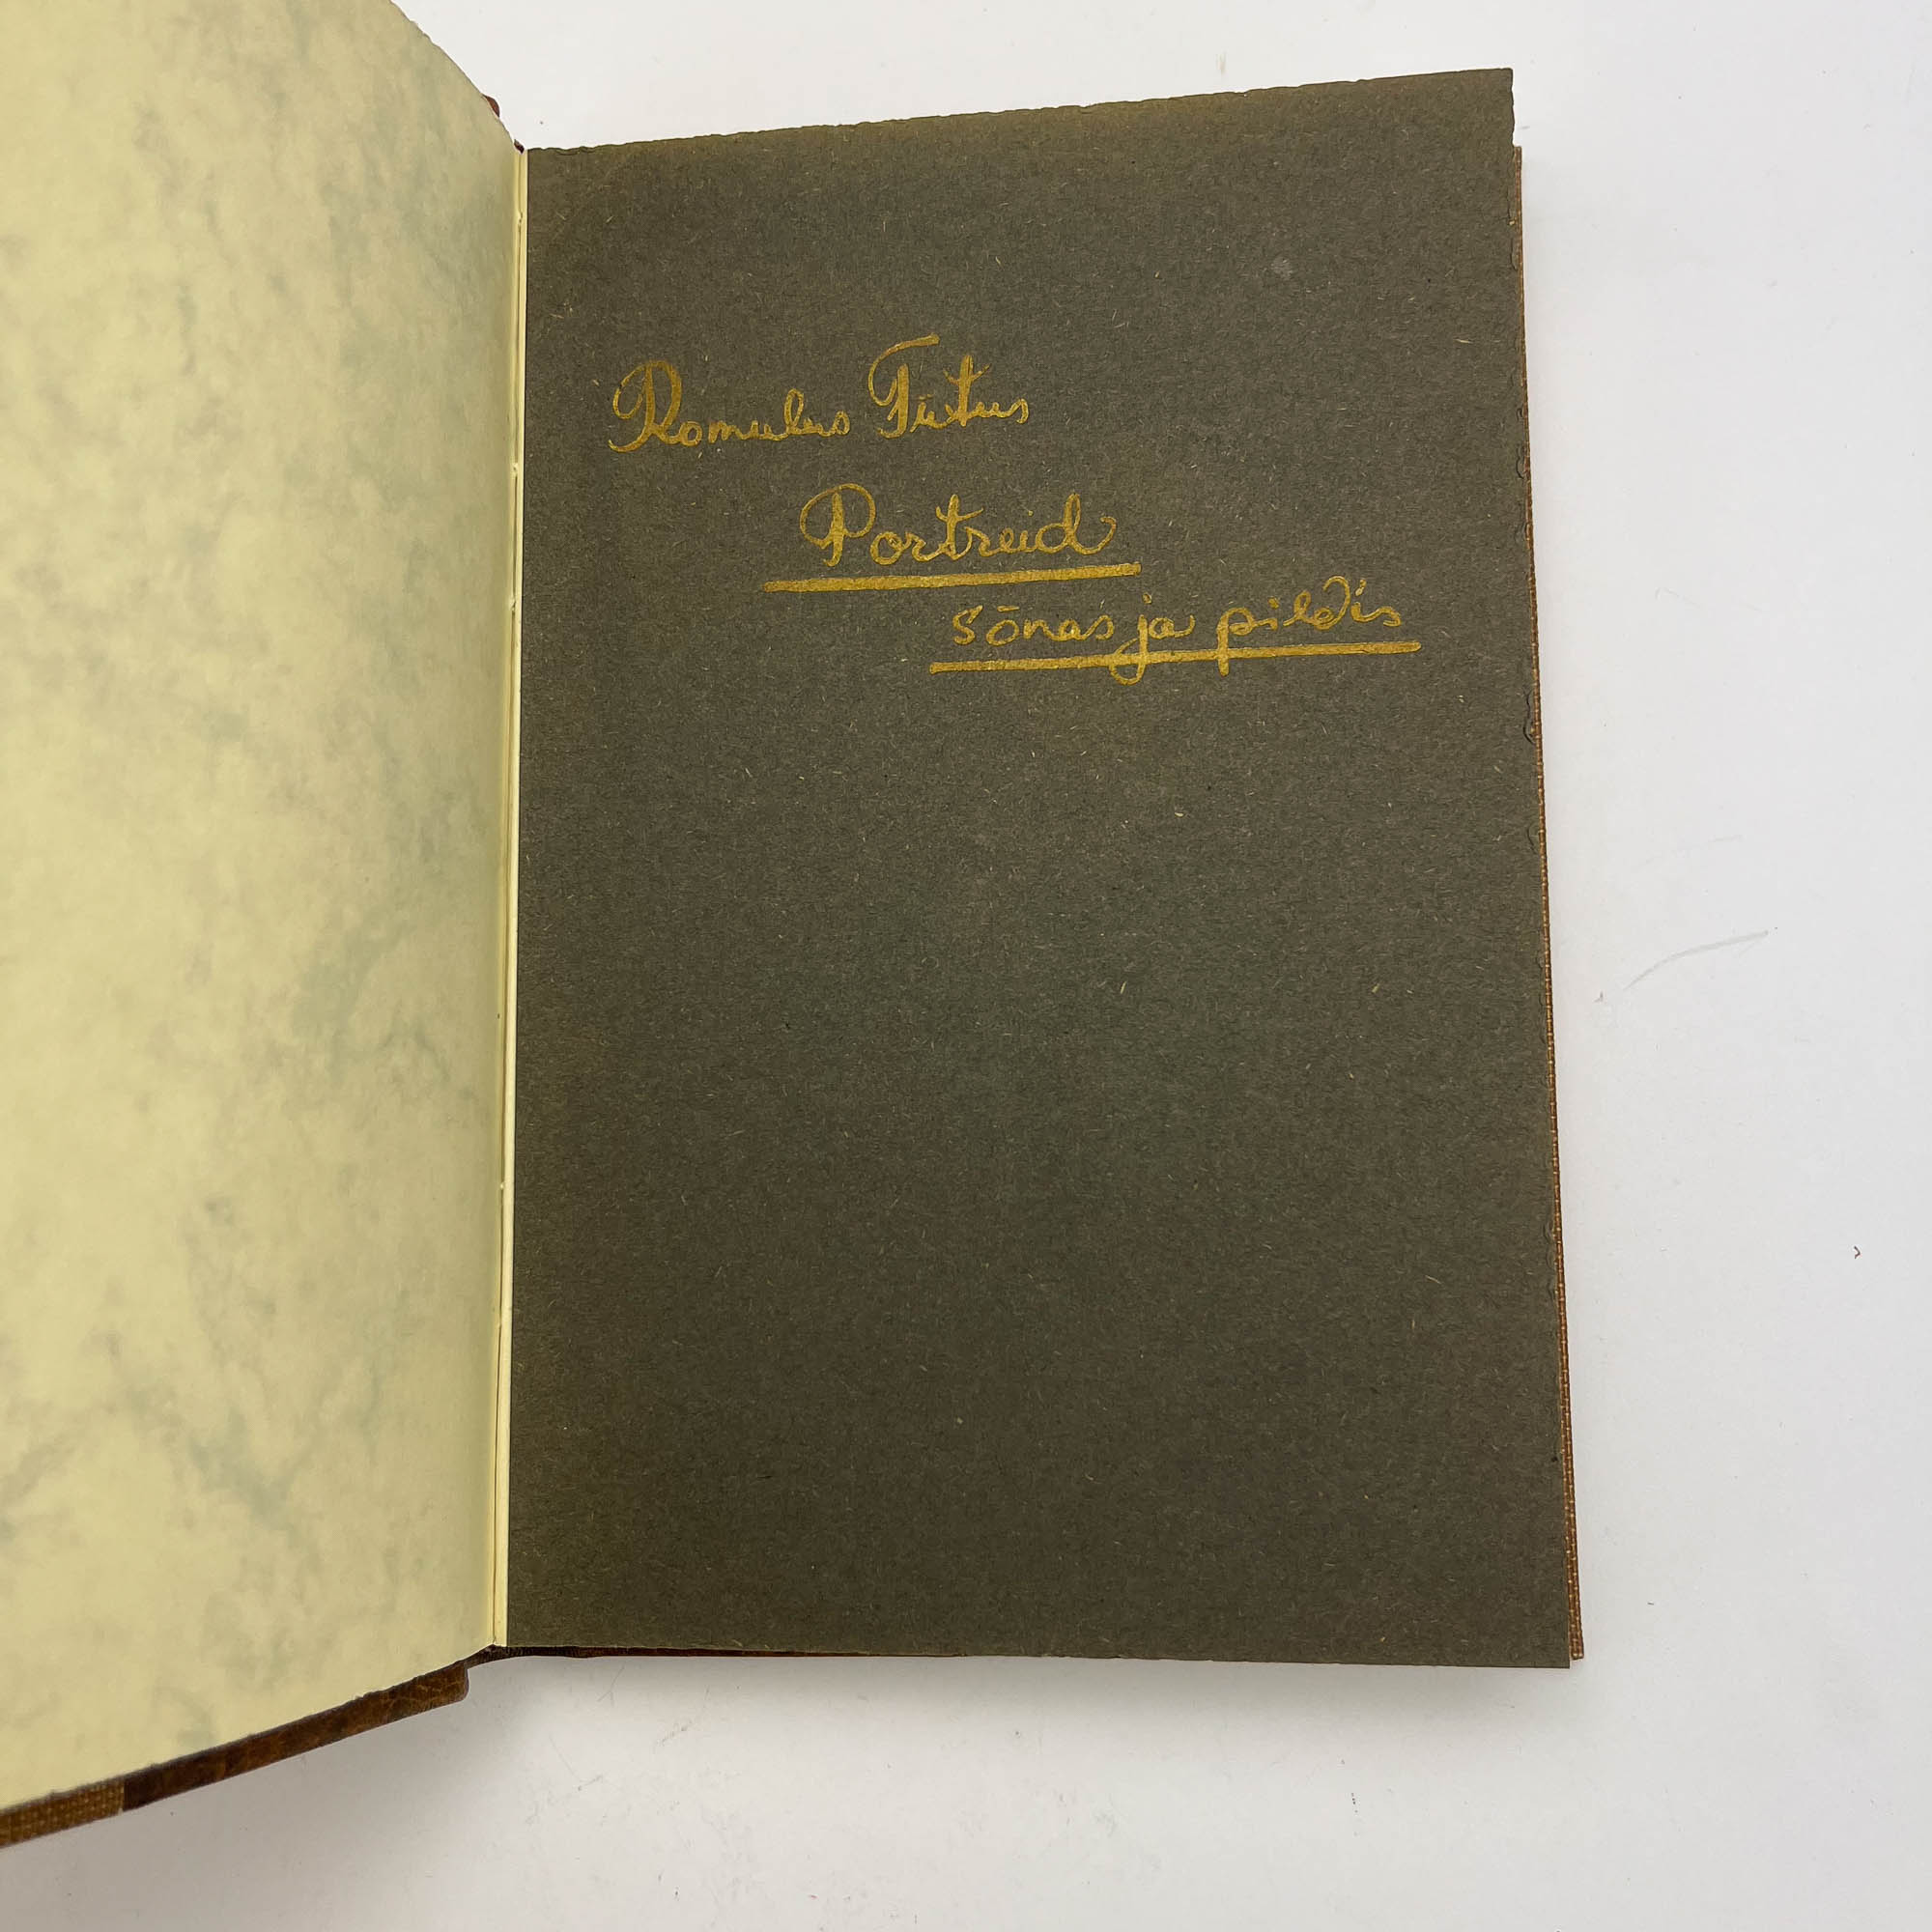 Romulus Tiitus
Portreid
sõnas ja pildis